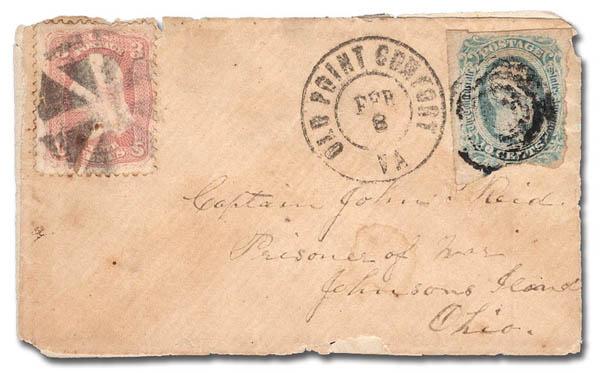 3
OLD POINT COMFORT
FEB
8
VA
POSTAGE
CENTS
Captain John Reid.
Prisoner of War
Johnsons Iland
Ohio.